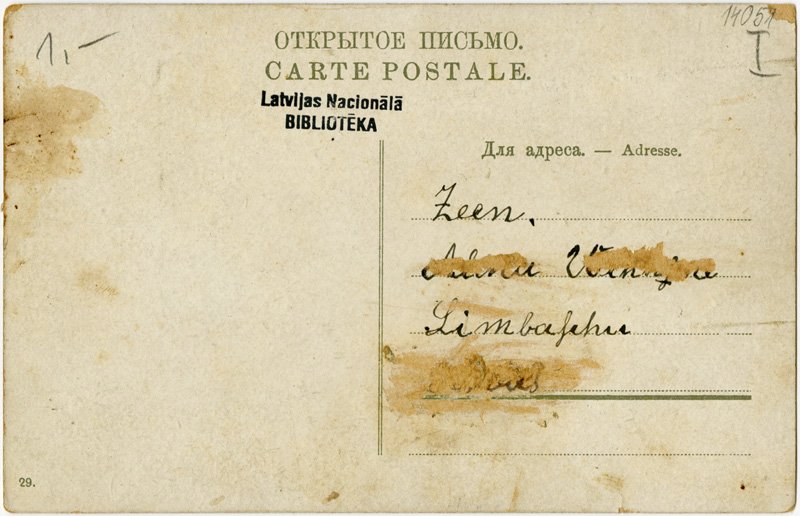 1,-
14054
I
ОТКРЫТОЕ ПИСЬМО.
CARTE POSTALE.
Latvijas Nacionālā
BIBLIOTĒKA
Для адреса. — Adresse.
Zeen.
Limbaschu
29.